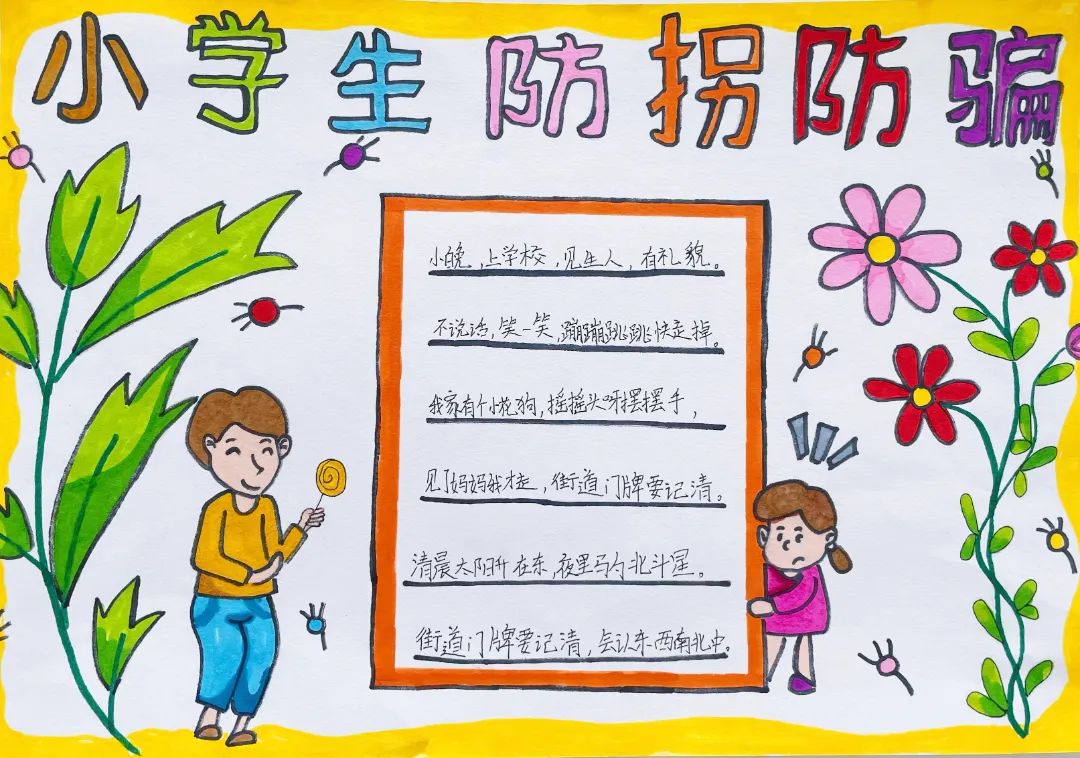 小学生防拐防骗
小晚，上学校，见生人，有礼貌。
不说话，笑一笑，蹦蹦跳跳快走掉。
我家有个小花狗，摇摇头呀摆摆手，
见了妈妈我才走，街道门牌要记清。
清晨太阳升在东，夜里马勺北斗星。
街道门牌要记清，会认东西南北中。